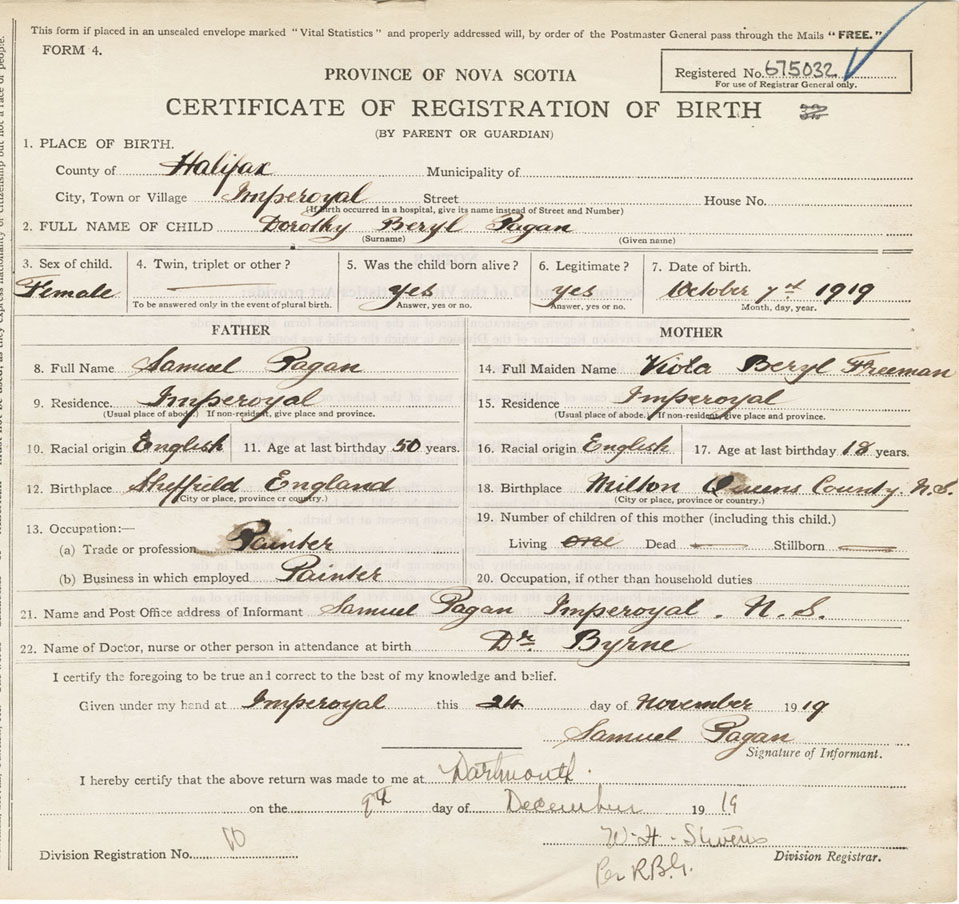 This form if placed in an unsealed envelope marked "Vital Statistics" and properly addressed will, by order of the Postmaster General pass through the Mails "FREE."
FORM 4.
PROVINCE OF NOVA SCOTIA
Registered No. 675032
For use of Registrar General only.
CERTIFICATE OF REGISTRATION OF BIRTH
(BY PARENT OR GUARDIAN)
1. PLACE OF BIRTH.
County of Halifax Municipality of
City, Town or Village Imperoyal Street House No.
(If birth occurred in a hospital, give its name instead of Street and Number)
2. FULL NAME OF CHILD Dorothy Beryl Pagan
(Surname) (Given name)
3. Sex of child. 4. Twin, triplet or other? 5. Was the child born alive? 6. Legitimate? 7. Date of birth.
Female yes yes October 7 1919
To be answered only in the event of plural birth. Answer, yes or no. Answer, yes or no. Month, day, year.
FATHER MOTHER
8. Full Name Samuel Pagan 14. Full Maiden Name Viola Beryl Freeman
9. Residence. Imperoyal 15. Residence Imperoyal
(Usual place of abode.) If non-resident, give place and province. (Usual place of abode.) If non-resident, give place and province.
10. Racial origin English 11. Age at last birthday 50 years. 16. Racial origin English 17. Age at last birthday 18 years.
12. Birthplace Sheffield England 18. Birthplace Milton Queens County. N.S.
(City or place, province or country.) (City or place, province or country.)
13. Occupation:— 19. Number of children of this mother (including this child.)
(a) Trade or profession Painter Living one Dead Stillborn
(b) Business in which employed Painter 20. Occupation, if other than household duties
21. Name and Post Office address of Informant Samuel Pagan Imperoyal . N. S.
22. Name of Doctor, nurse or other person in attendance at birth Dr. Byrne
I certify the foregoing to be true and correct to the best of my knowledge and belief.
Given under my hand at Imperoyal this 24 day of November 1919
Samuel Pagan
Signature of Informant.
I hereby certify that the above return was made to me at Dartmouth.
on the 9th day of December 1919
W. H. Stevens
Division Registration No. Division Registrar.
Per R.B.G.